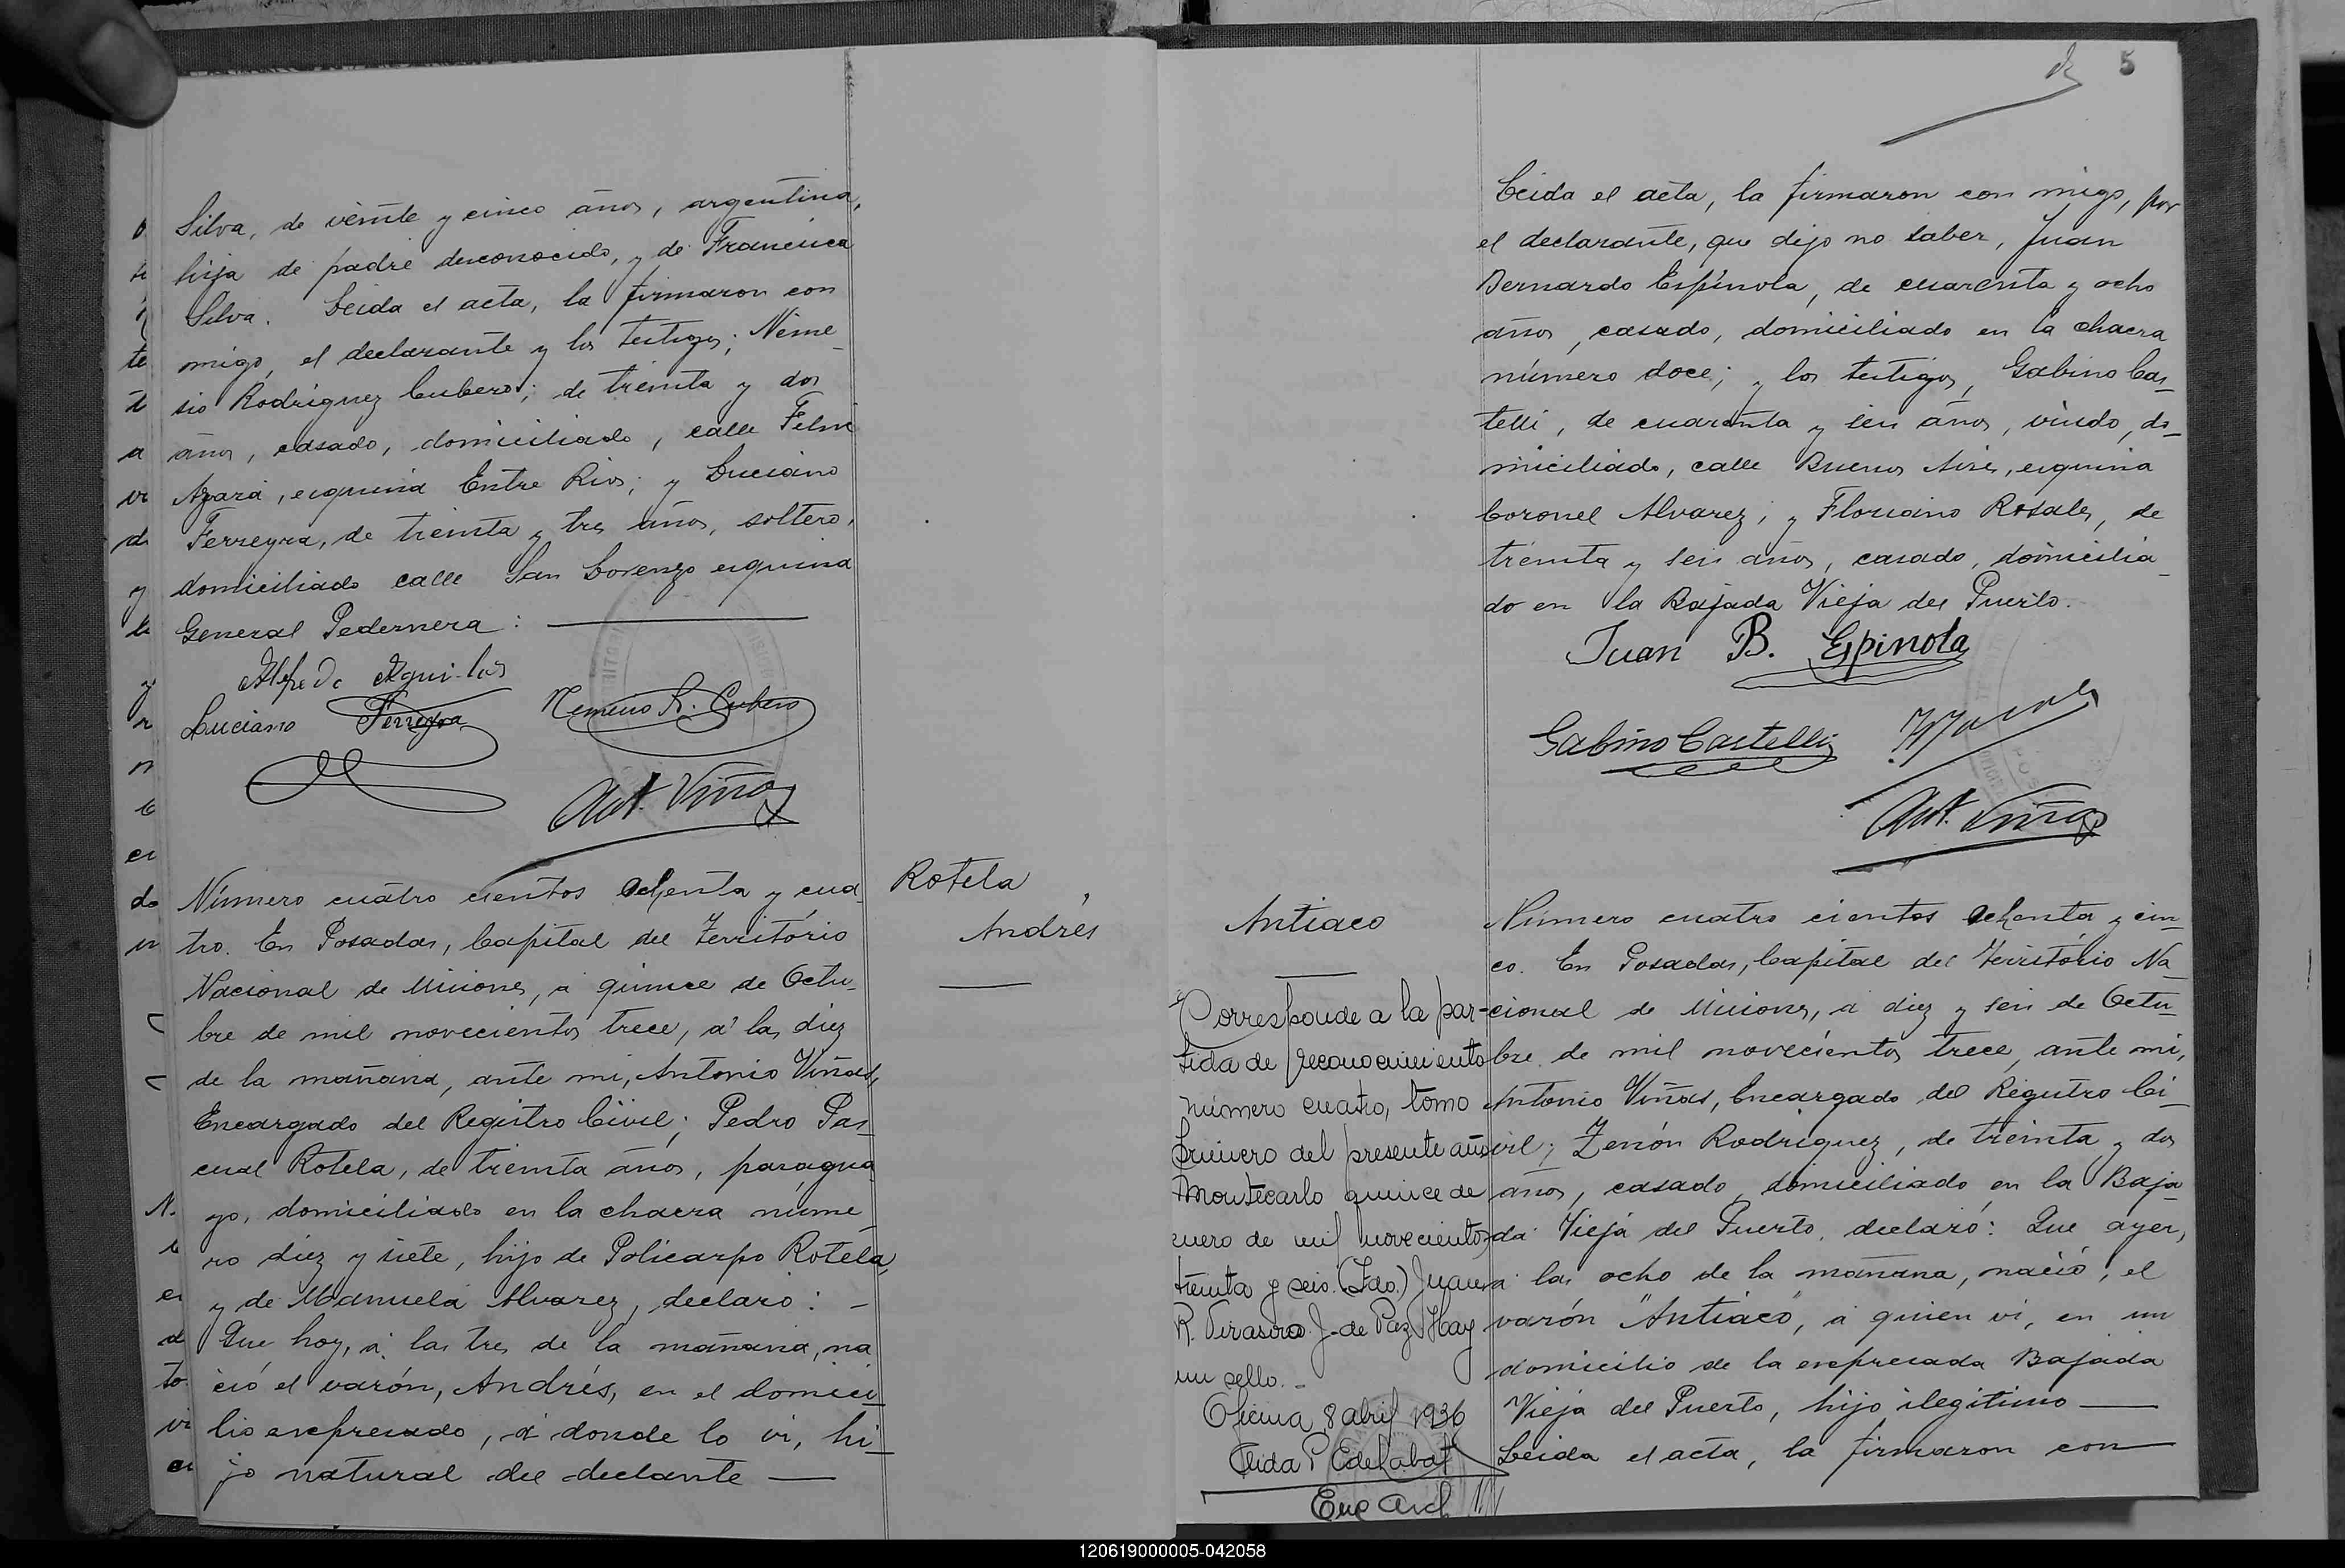 Silva, de veinte y cinco años, argentina,
hija de padre desconocido, y de Francisca
Silva. Leida el acta, la firmaron con
migo, el declarante y los testigos; Neme-
sio Rodríguez Cubero; de treinta y dos
años, casado, domiciliado, calle Felix
Azara, esquina Entre Rios; y Luciano
Ferreyra, de treinta y tres años, soltero,
domiciliado calle San Lorenzo esquina
General Pedernera:
Alfredo Aguilar
Luciano Ferreyra
Nemesio R. Cubero
Ant. Viñas
Número cuatro cientos ochenta y cua-
tro. En Posadas, Capital del Territorio
Nacional de Misiones, á quince de Octu-
bre de mil novecientos trece, á las diez
de la mañana, ante mi, Antonio Viñas,
Encargado del Registro Civil; Pedro Pas-
cual Rotela, de treinta años, paragua-
yo, domiciliado en la chacra núme-
ro diez y siete, hijo de Policarpo Rotela,
y de Manuela Alvarez, declaró: —
Que hoy, á las tres de la mañana, na-
ció el varón, Andrés, en el domici-
lio expresado, á donde lo vi, hi-
jo natural del declante —
Rotela
Andrés
5
Leida el acta, la firmaron con migo, por
el declarante, que dijo no saber, Juan
Bernardo Espínola, de cuarenta y ocho
años, casado, domiciliado en la chacra
número doce; y los testigos, Gabino Cas-
telli, de cuarenta y seis años, viudo, do-
miciliado, calle Buenos Aires, esquina
Coronel Alvarez; y Floriano Rosales, de
treinta y seis años, casado, domicilia-
do en la Bajada Vieja del Puerto.
Juan B. Espinola
Gabino Castelli
Ant. Viñas
Antiaco
Corresponde a la par-
tida de reconocimiento
número cuatro, tomo
primero del presente año
Montecarlo quince de
enero de mil novecientos
treinta y seis. (Fdo.) Juan
R. Virasoro J. de Paz Hay
un sello. -
Oficina, 8 abril 1936
Enc Arch
Número cuatro cientos ochenta y cin-
co. En Posadas, Capital del Territorio Na-
cional de Misiones, á diez y seis de Octu-
bre de mil novecientos trece, ante mi,
Antonio Viñas, Encargado del Registro Ci-
vil; Zenón Rodríguez, de treinta y dos
años, casado, domiciliado en la Baja-
da Vieja del Puerto, declaró: Que ayer,
á las ocho de la mañana, nació, el
varón "Antiaco", á quien vi, en un
domicilio de la expresada Bajada
Vieja del Puerto, hijo ilegítimo —
Leida el acta, la firmaron con
120619000005-042058